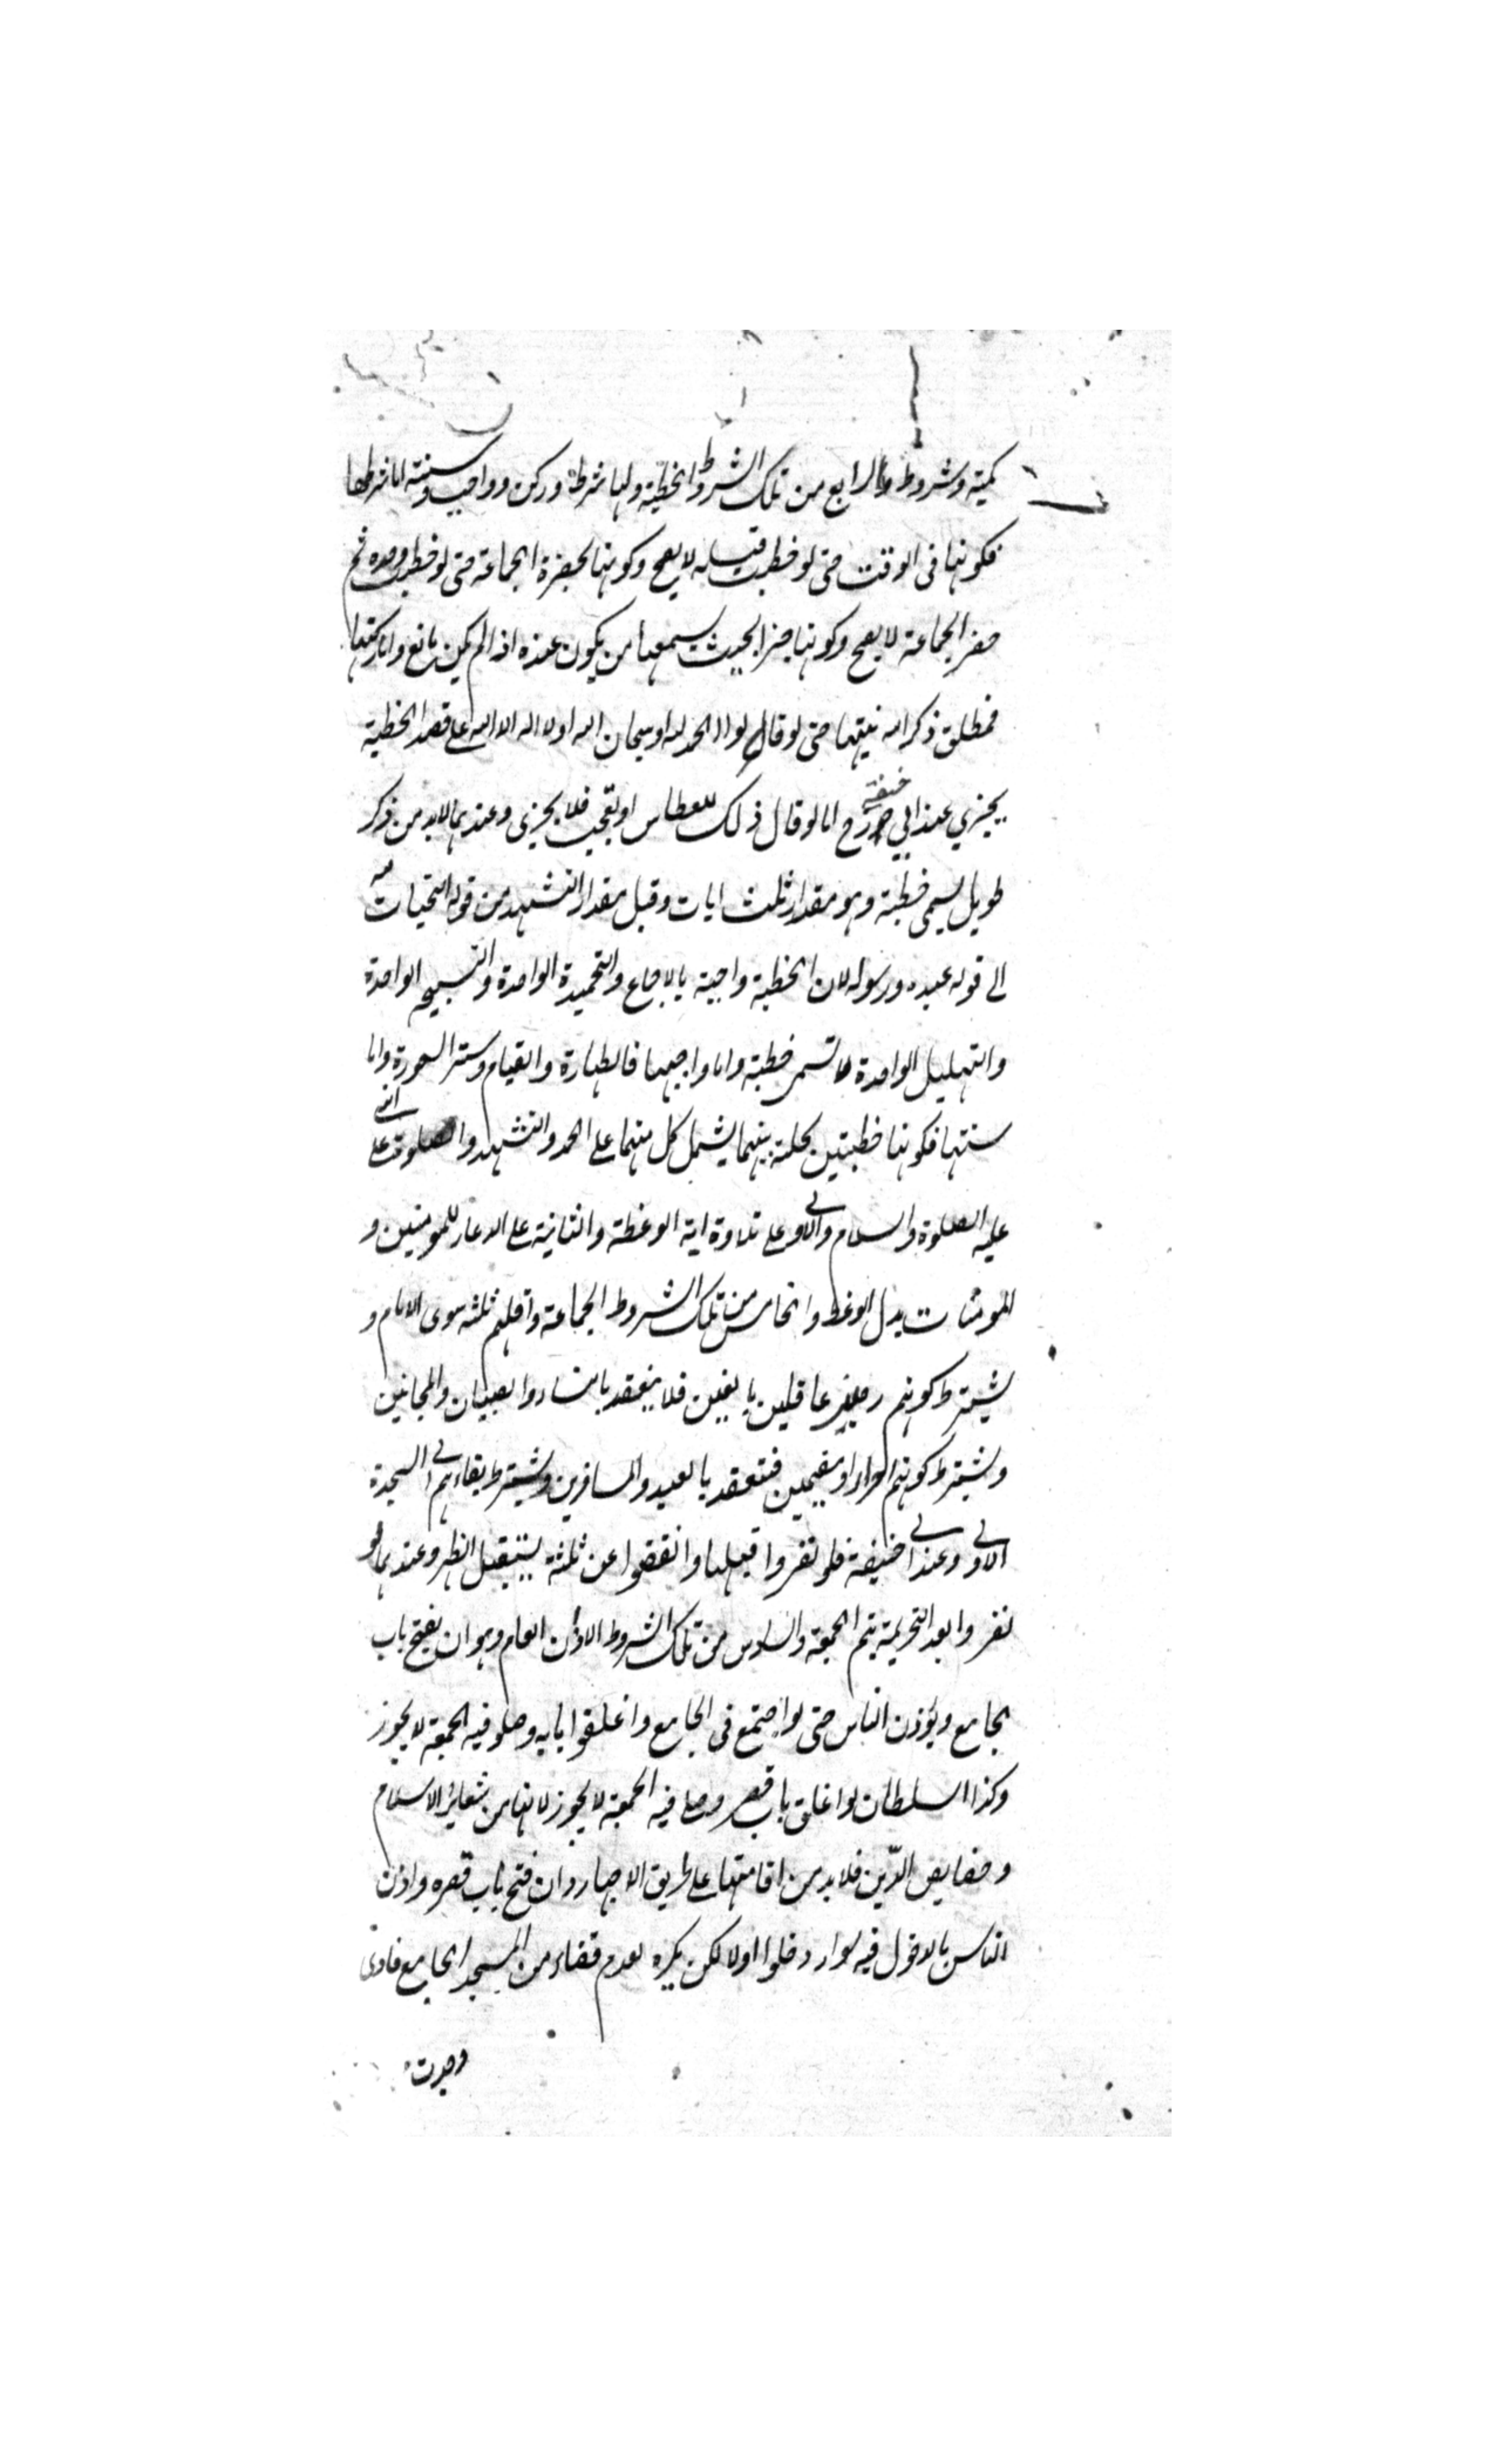 كميته وشروط والرابع من تلك الشروط الخطبة ولها شرط وركن وواجب وسنة اما شرطها
فكونها فى الوقت حتى لو خطبت قبله لا يصح وكونها بحضرة الجماعة حتى لو خطب وحده ثم
حضر الجماعة لا يصح وكونها جهرا بحيث يسمعها من يكون عنده اذا لم يكن مانع واما ركنها
فمطلق ذكر الله بنيتها حتى لو قال الحمد لله او سبحان الله او لا اله الا الله على قصد الخطبة
يجزي عند ابي حنيفة رح اما لو قال ذلك للعطاس او تعجب فلا يجزى وعندهما لابد من ذكر
طويل يسمى خطبة وهو مقدار ثلث ايات وقيل مقدار التشهد من قوله التحيات لله
الى قوله عبده ورسوله لان الخطبة واجبة بالاجماع والتحميدة الواحدة والتسبيحه الواحدة
والتهليل الواحدة لا تسمى خطبة واما واجبها فالطهارة والقيام وستر العورة واما
سنتها فكونها خطبتين بجلسة بينهما يشمل كل منهما على الحمد والتشهد والصلوة على النبى
عليه الصلوة والسلام والاولى على تلاوة اية الوعظة والثانية على الدعاء للمومنين و
للمومنات بدل الوعظ والخامس من تلك الشروط الجماعة واقلهم ثلثه سوى الامام و
يشترط كونهم عاقلين بالغين فلا ينعقد بالنساء والصبيان والمجانين
ويشترط كونهم احرارا ومقيمين فتنعقد بالعبيد والمسافرين ويشترط بقاءهم الى السجدة
الاولى وعند ابى حنيفة فلو نفروا قبلها وانقضوا عن ثلثة يستقبل الظهر وعندهما لو
نفروا بعد التحريمة يتم الجمعة والسادس من تلك الشروط الاذن العام وهو ان يفتح باب
الجامع ويؤذن الناس حتى لو اجتمع فى الجامع واغلقوا بابه وصلو فيه الجمعة لا يجوز
وكذا السلطان لو اغلق باب قصر وصلى فيه الجمعة لا يجوز لانها من شعائر الاسلام
وخصايص الدّين فلابد من اقامتها على طريق الاجهار وان فتح باب قصره واذن
الناس بالدخول فيه سواء دخلوا اولا لكن يكره لعدم قضاء من المسجد الجامع فاذى
وجدت